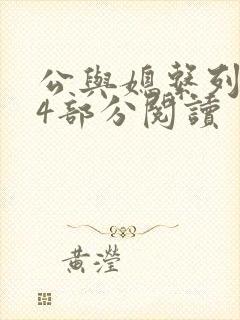 公與媳繫列
4部分閱讀
黃瀅